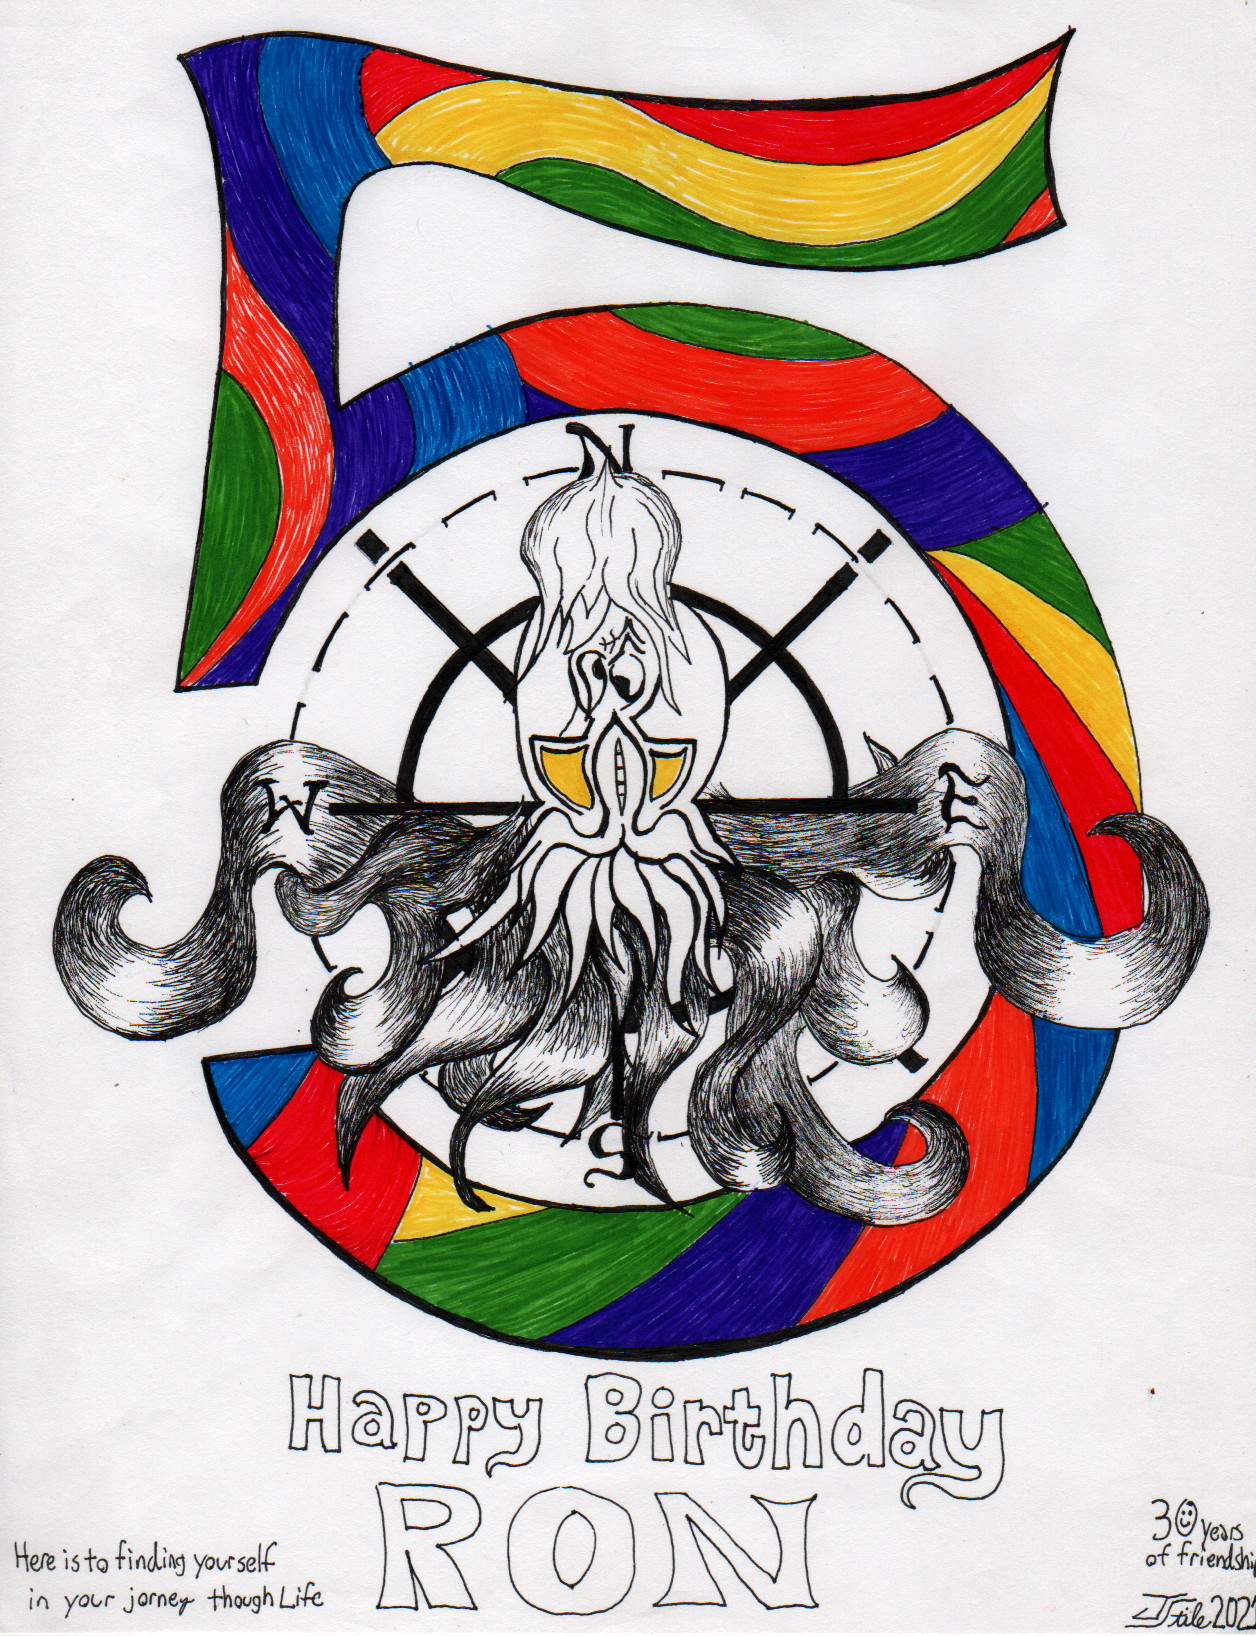 5
N
W
E
S
Happy Birthday
RON
Here is to finding yourself
in your jorney though Life
30 years
of friendship
JStile 2021